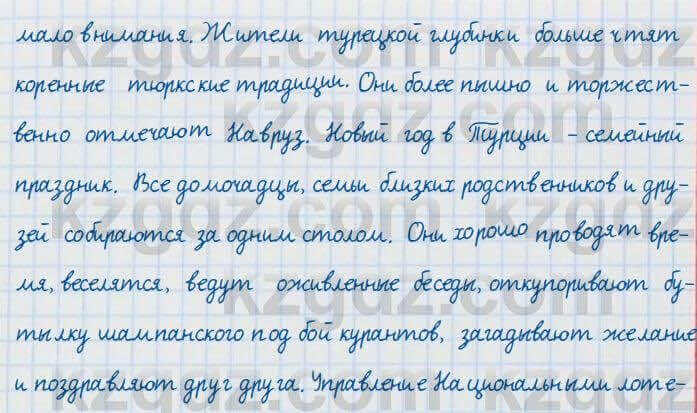 мало внимания. Жители турецкой глубинки больше чтят
коренные тюркские традиции. Они более пышно и торжест-
венно отмечают Навруз. Новый год в Турции - семейный
праздник. Все домочадцы, семьи близких родственников и дру-
зей собираются за одним столом. Они хорошо проводят вре-
мя, веселятся, ведут оживленные беседы, откупоривают бу-
тылку шампанского под бой курантов, загадывают желание
и поздравляют друг друга. Управление Национальными лоте-